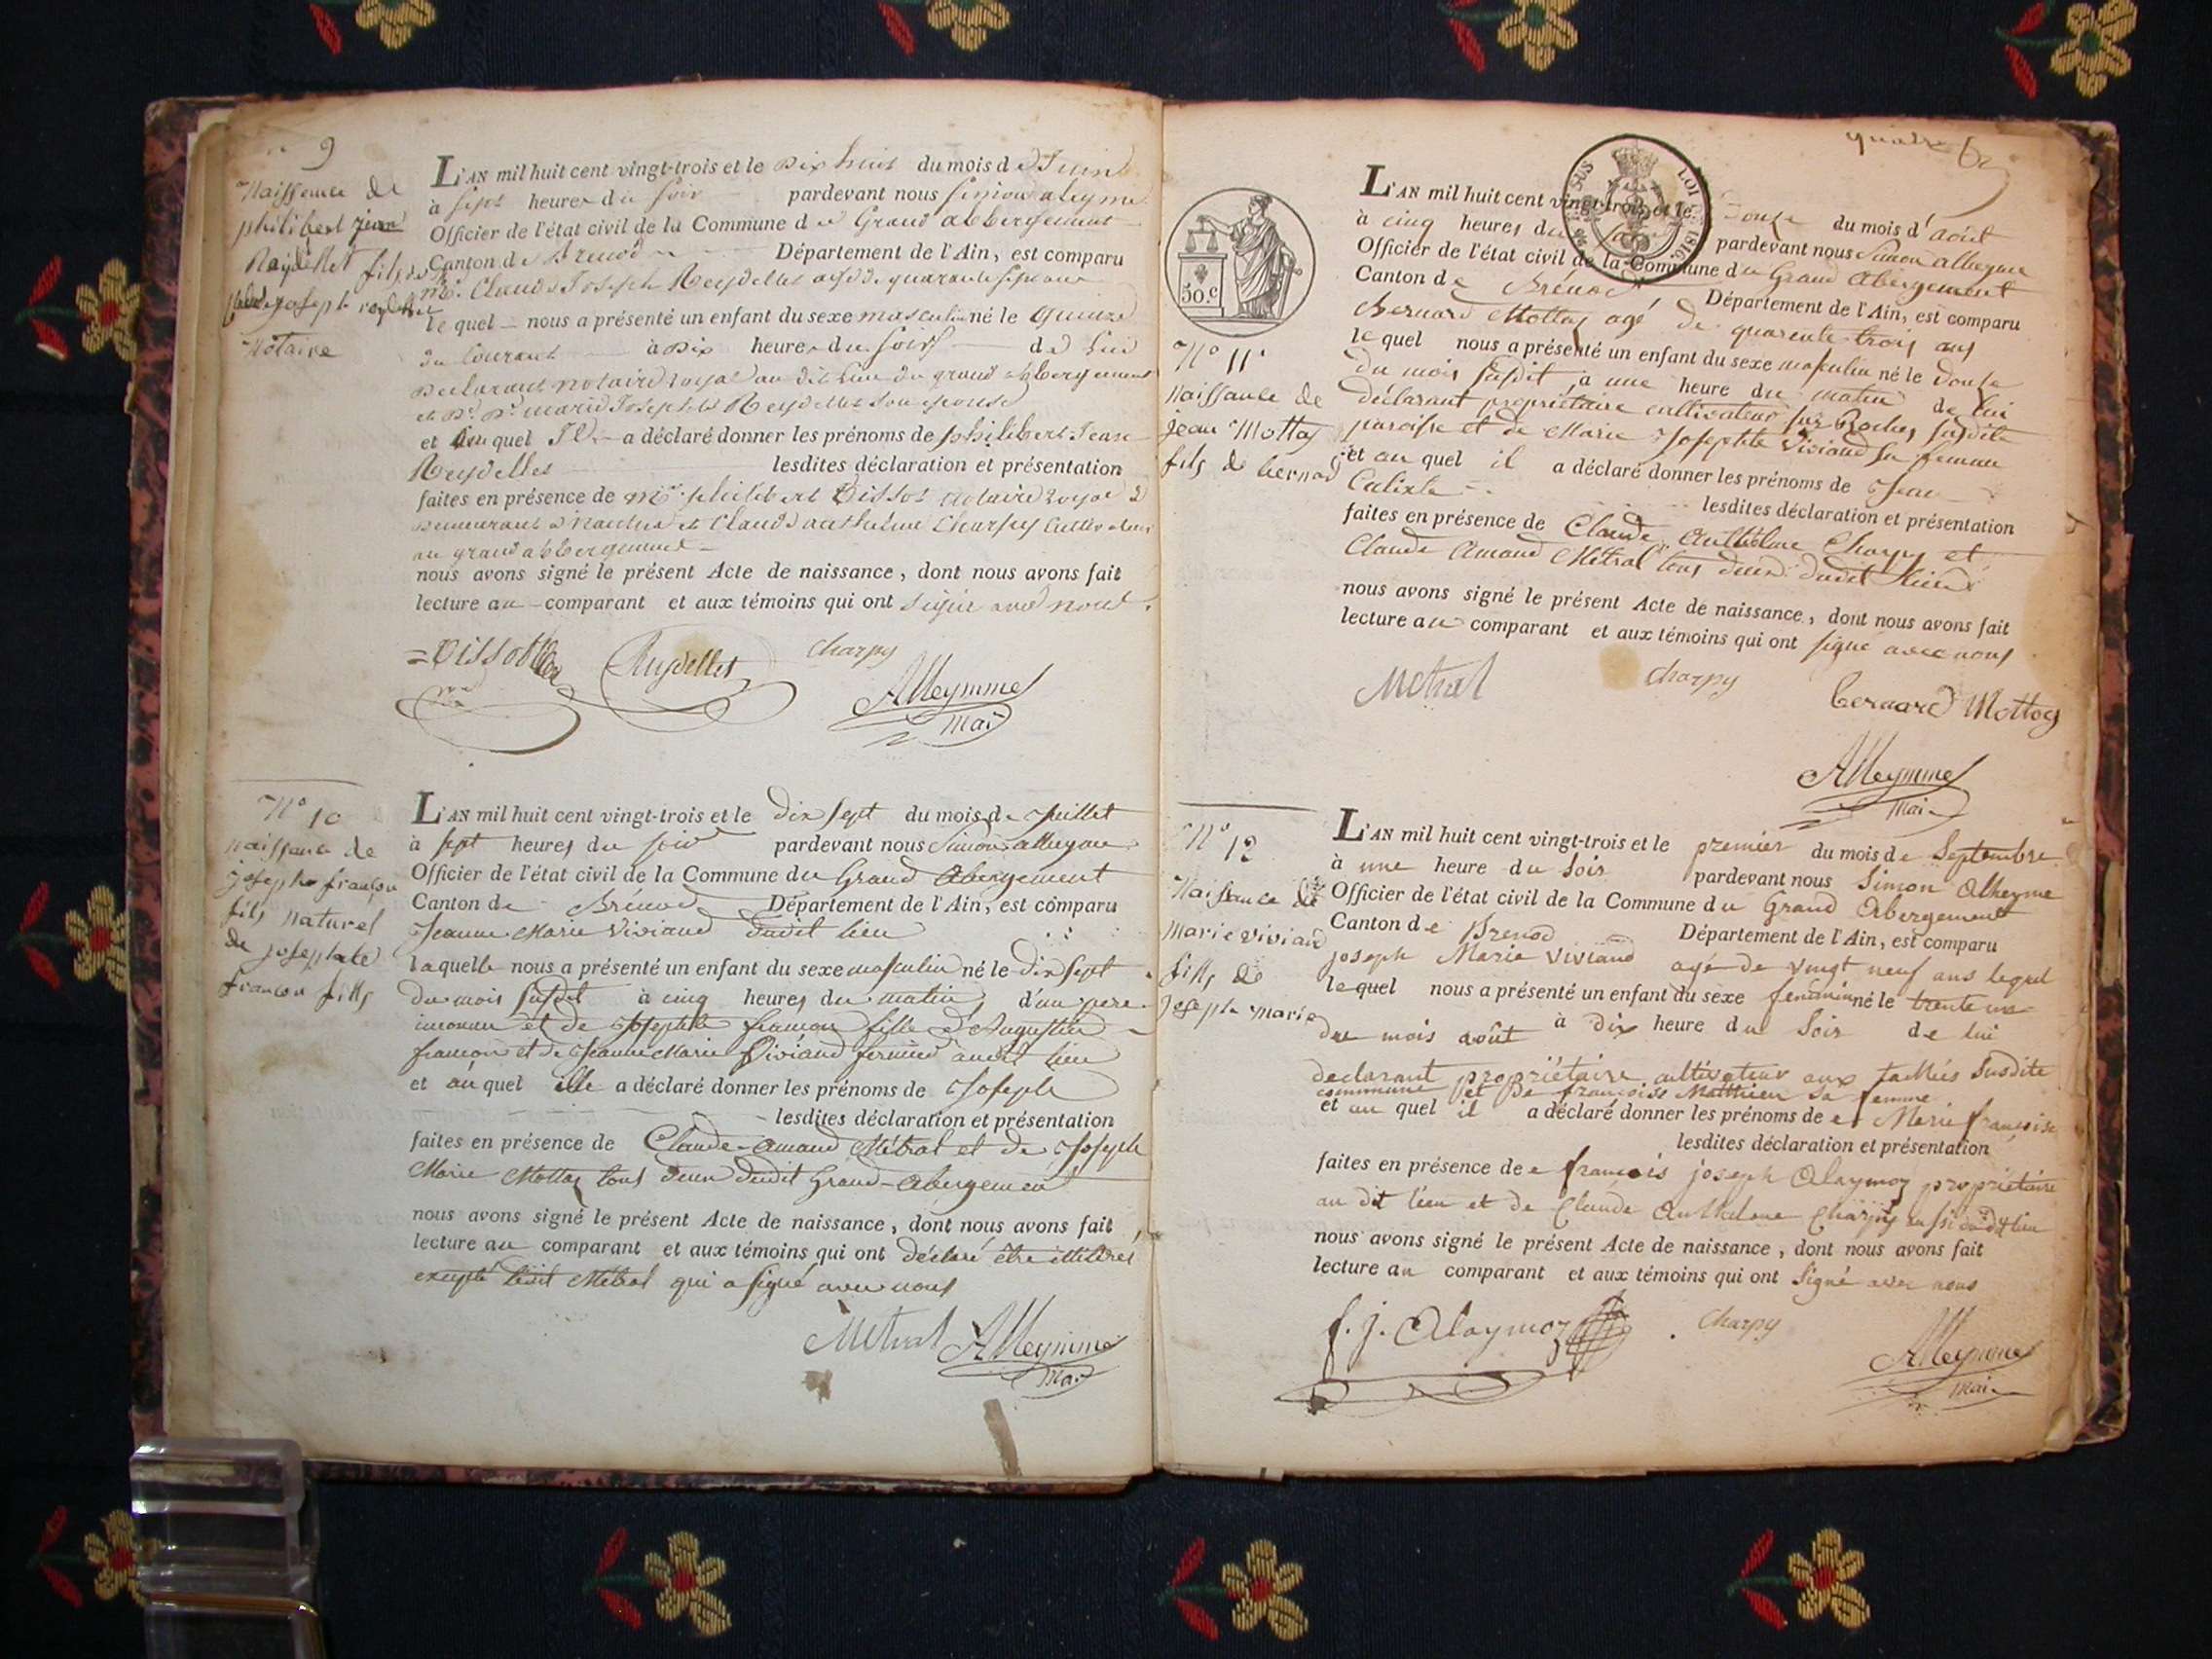 9
Naissance de
philibert jean
Reydellet fils de
Claude joseph reydellet
Notaire
L'AN mil huit cent vingt-trois et le Dix huit du mois de Juin
à sept heures du soir pardevant nous Simon aleyme
Officier de l'état civil de la Commune de Grand abbergement
Canton de Brenod Département de l'Ain, est comparu
Mr. Claude Joseph Reydellet agé de quarante sept ans
le quel nous a présenté un enfant du sexe masculin né le quinze
du Courant à Dix heures du soir de lui
Declarant notaire royal au dit lieu du grand abbergement
et marie Josephte Reydellet son epouse
et auquel Il a déclaré donner les prénoms de philibert Jean
Reydellet lesdites déclaration et présentation
faites en présence de Mr. philibert Dissot notaire royal
Demeurant a et Claude anthelme Charpy Cultivateur
au grand abbergement
nous avons signé le présent Acte de naissance, dont nous avons fait
lecture au comparant et aux témoins qui ont signé avec nous.
Reydellet
charpy
Alleymme
Mai
N° 10
naissance de
joseph françon
fils naturel
de josephte
françon fills
L'AN mil huit cent vingt-trois et le dix sept du mois de Juillet
à sept heures du soir pardevant nous Simon alleyme
Officier de l'état civil de la Commune du Grand Abergement
Canton de Brénod Département de l'Ain, est comparu
Jeanne Marie Viviand dudit lieu
laquelle nous a présenté un enfant du sexe masculin né le dix sept
du mois susdit à cinq heures du matin, d'un pere
inconnu et de Josephte françon fille d'Augustin
françon et de Jeanne Marie Viviand audit lieu
et au quel ille a déclaré donner les prénoms de Joseph
lesdites déclaration et présentation
faites en présence de Claude-amand Métral et de Joseph
Marie Mottaz tous deux dudit Grand-Abergement
nous avons signé le présent Acte de naissance, dont nous avons fait
lecture au comparant et aux témoins qui ont déclaré être illitérés
excepté ledit Métral qui a signé avec nous
Metral
Alleymme
Mai
quatre
SUS LOI 1816
50.c
N° 11
naissance de
jean Mottaz
fils de bernard
L'AN mil huit cent vingt-trois et le Douze du mois d'août
à cinq heures du soir pardevant nous Simon alleyme
Officier de l'état civil de la Commune du Grand Abergement
Canton de Brénod Département de l'Ain, est comparu
Bernard Mottaz agé de quarente trois ans
le quel nous a présenté un enfant du sexe masculin né le Douze
du mois susdit, à une heure du matin de lui
déclarant propriétaire cultivateur sur Roches susdite
paroisse et de Marie Josephte Viviand sa femme
et au quel il a déclaré donner les prénoms de Jean
Calixte lesdites déclaration et présentation
faites en présence de Claude Anthelme Charpy et
Claude Amand Métral tous deux dudit lieu
nous avons signé le présent Acte de naissance, dont nous avons fait
lecture au comparant et aux témoins qui ont signé avec nous
Metral
charpy
bernard Mottaz
Alleymme
Mai
N° 12
Naissance de
marie viviand
fills de
joseph marie
L'AN mil huit cent vingt-trois et le premier du mois de Septembre
à une heure du soir pardevant nous Simon Alleyme
Officier de l'état civil de la Commune du Grand Abergement
Canton de Brenod Département de l'Ain, est comparu
joseph Marie Viviand agé de vingt neuf ans lequel
lequel nous a présenté un enfant du sexe feminin né le trente un
du mois août à Dix heure du Soir de lui
declarant propriétaire cultivateur aux susdite
commune et de françoise Matthieu sa femme
et au quel il a déclaré donner les prénoms de Marie françoise
lesdites déclaration et présentation
faites en présence de françois joseph Alaymoz propriétaire
au dit lieu et de Claude Anthelme Charpy aussi du dit lieu
nous avons signé le présent Acte de naissance, dont nous avons fait
lecture au comparant et aux témoins qui ont signé avec nous
f. j. Alaymoz
charpy
Alleymme
Mai